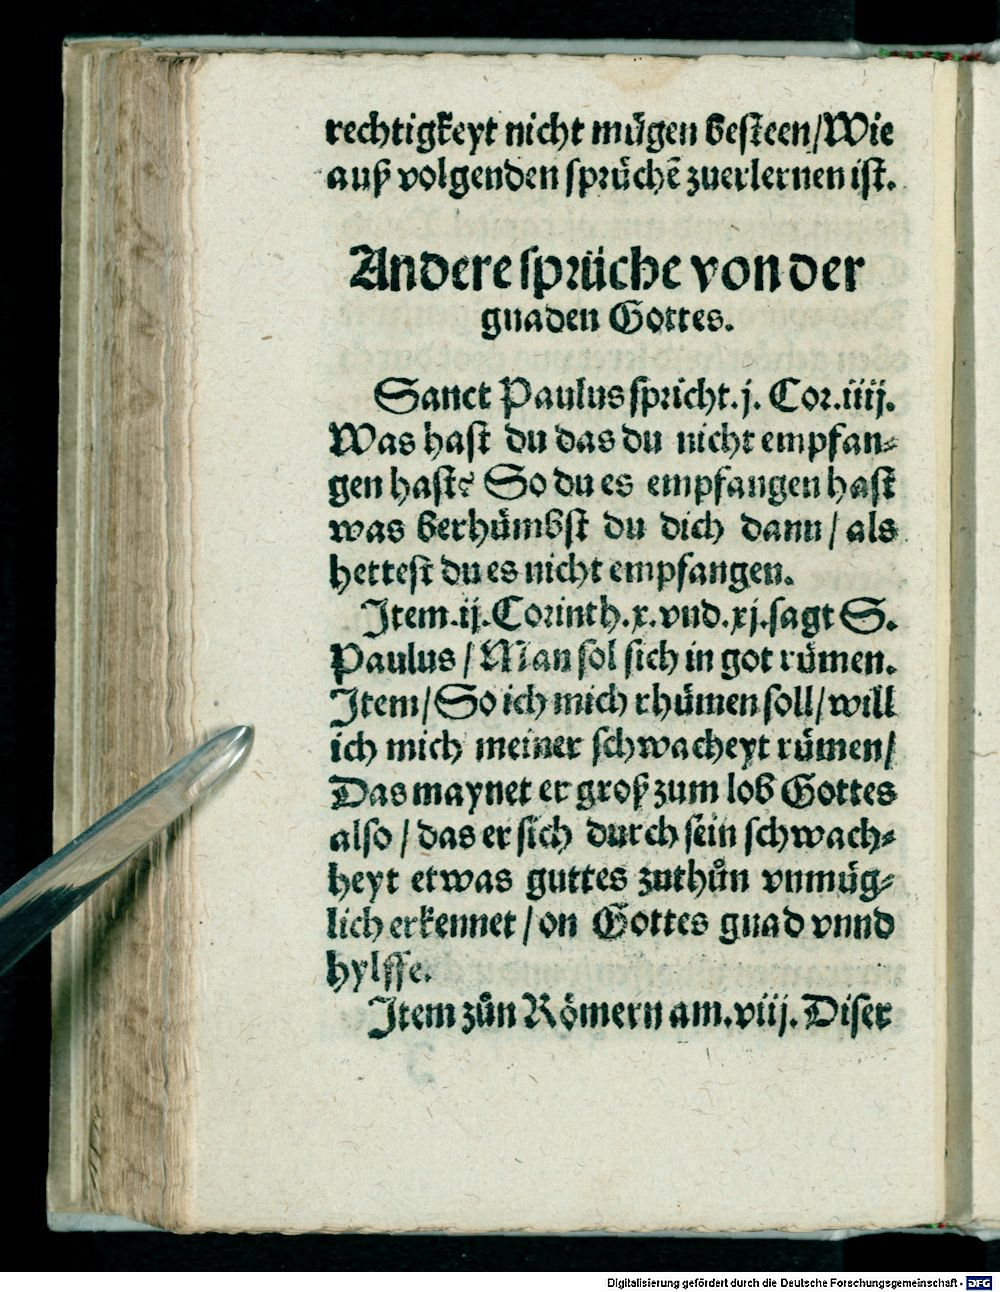 rechtigkeyt nicht mügen besteen/Wie
auß volgenden sprüchẽ zuerlernen ist.
Andere sprüche von der
gnaden Gottes.
Sanct Paulus spricht.j. Cor.iiij.
Was hast du das du nicht empfan⸗
gen hast? So du es empfangen hast
was berhümbst du dich dann/ als
hettest du es nicht empfangen.
Item.ij.Corinth.x.vnd.xj.sagt S.
Paulus/ Man sol sich in got rümen.
Item/So ich mich rhümen soll/will
ich mich meiner schwacheyt rümen/
Das maynet er groß zum lob Gottes
also/ das er sich durch sein schwach⸗
heyt etwas guttes zuthůn vnmüg⸗
lich erkennet/on Gottes gnad vnnd
hylffe.
Item zůn Römern am.viij. Diser
Digitalisierung gefördert durch die Deutsche Forschungsgemeinschaft - DFG